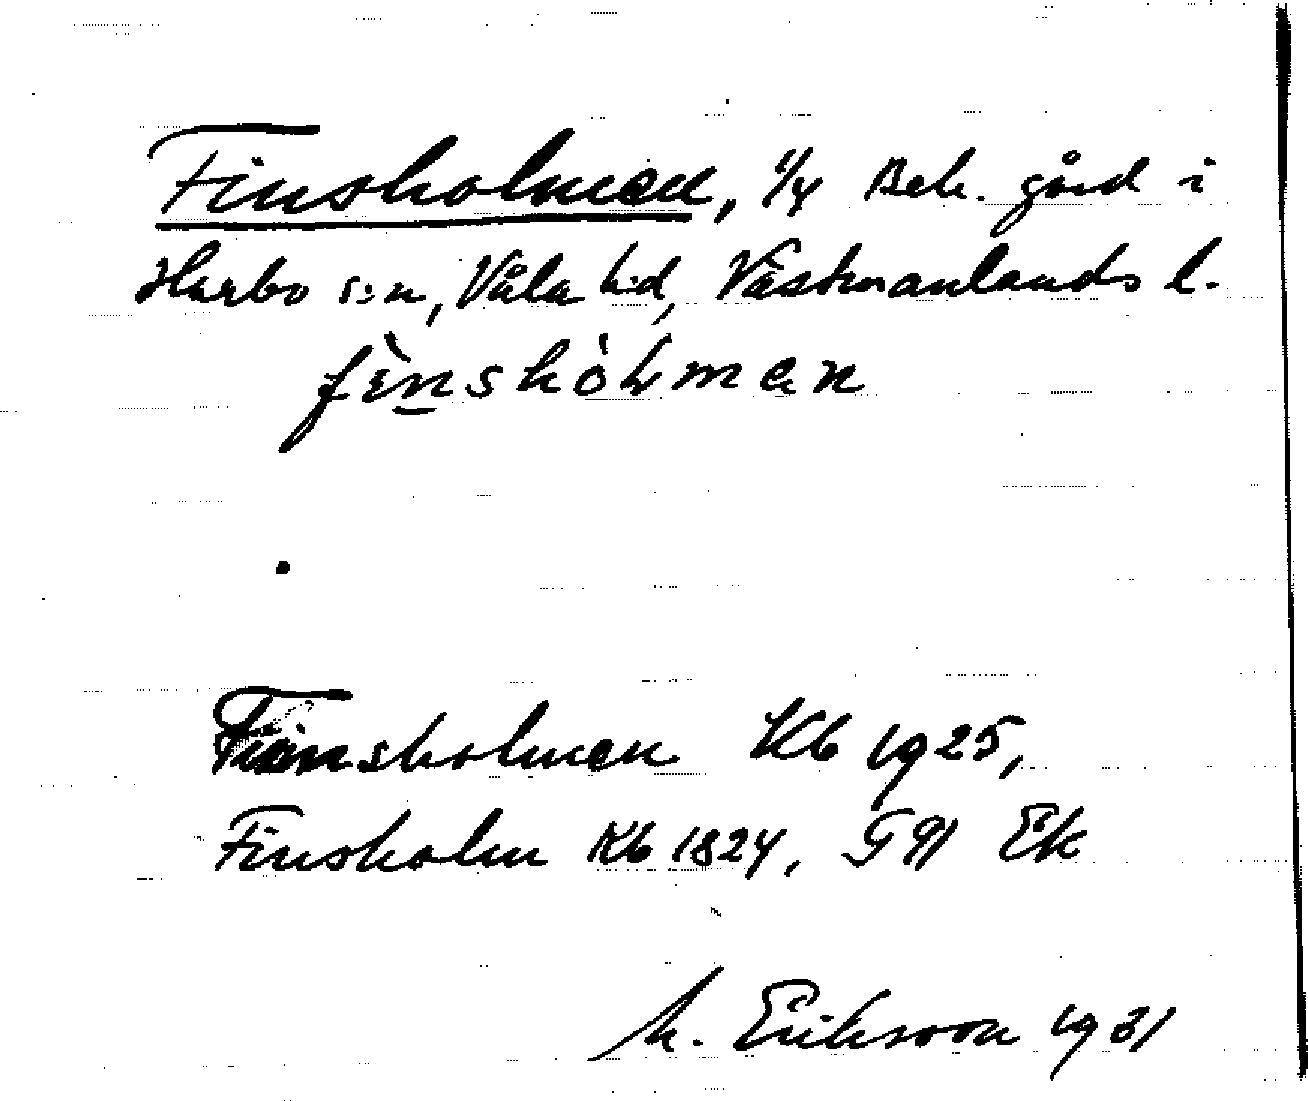 Finsholmen, 1/4 Beb. gård i
Harbo s:n, Våla h:d, Västmanlands l.
fìnshòlman
Finsholmen Kb 1925,
Finsholm Kb 1824, G 91 Ek
M. Eriksson 1931